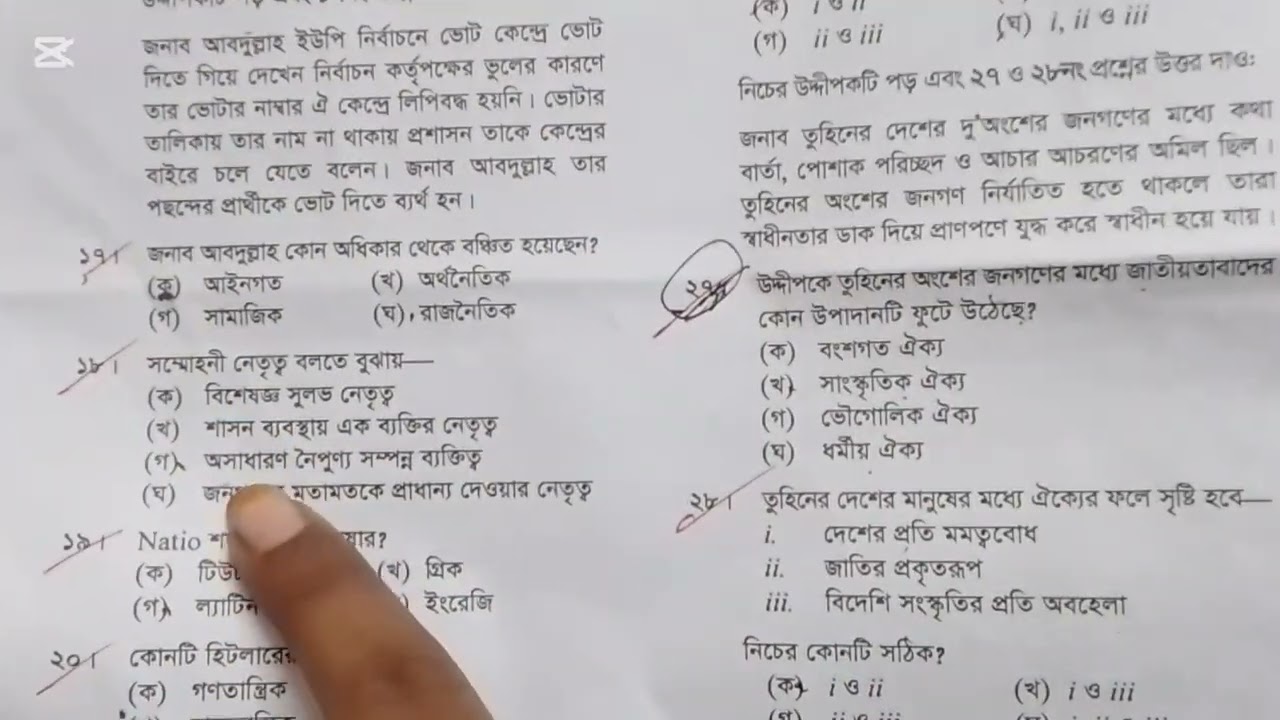 জনাব আবদুল্লাহ ইউপি নির্বাচনে ভোট কেন্দ্রে ভোট
দিতে গিয়ে দেখেন নির্বাচন কর্তৃপক্ষের ভুলের কারণে
তার ভোটার নাম্বার ঐ কেন্দ্রে লিপিবদ্ধ হয়নি। ভোটার
তালিকায় তার নাম না থাকায় প্রশাসন তাকে কেন্দ্রের
বাইরে চলে যেতে বলেন। জনাব আবদুল্লাহ তার
পছন্দের প্রার্থীকে ভোট দিতে ব্যর্থ হন।
১৭। জনাব আবদুল্লাহ কোন অধিকার থেকে বঞ্চিত হয়েছেন?
(ক) আইনগত (খ) অর্থনৈতিক
(গ) সামাজিক (ঘ) রাজনৈতিক
১৮। সম্মোহনী নেতৃত্ব বলতে বুঝায়—
(ক) বিশেষজ্ঞ সুলভ নেতৃত্ব
(খ) শাসন ব্যবস্থায় এক ব্যক্তির নেতৃত্ব
(গ) অসাধারণ নৈপুণ্য সম্পন্ন ব্যক্তিত্ব
(ঘ) মতামতকে প্রাধান্য দেওয়ার নেতৃত্ব
১৯। Natio
(ক) (খ) গ্রিক
(গ) ল্যাটিন ইংরেজি
২০। কোনটি হিটলারের
(ক) গণতান্ত্রিক
(ক) i ও ii
(গ) ii ও iii (ঘ) i, ii ও iii
নিচের উদ্দীপকটি পড় এবং ২৭ ও ২৮নং প্রশ্নের উত্তর দাও:
জনাব তুহিনের দেশের দু'অংশের জনগণের মধ্যে কথা
বার্তা, পোশাক পরিচ্ছদ ও আচার আচরণের অমিল ছিল।
তুহিনের অংশের জনগণ নির্যাতিত হতে থাকলে তারা
স্বাধীনতার ডাক দিয়ে প্রাণপণে যুদ্ধ করে স্বাধীন হয়ে যায়।
২৭। উদ্দীপকে তুহিনের অংশের জনগণের মধ্যে জাতীয়তাবাদের
কোন উপাদানটি ফুটে উঠেছে?
(ক) বংশগত ঐক্য
(খ) সাংস্কৃতিক ঐক্য
(গ) ভৌগোলিক ঐক্য
(ঘ) ধর্মীয় ঐক্য
২৮। তুহিনের দেশের মানুষের মধ্যে ঐক্যের ফলে সৃষ্টি হবে—
i. দেশের প্রতি মমত্ববোধ
ii. জাতির প্রকৃতরূপ
iii. বিদেশি সংস্কৃতির প্রতি অবহেলা
নিচের কোনটি সঠিক?
(ক) i ও ii (খ) i ও iii